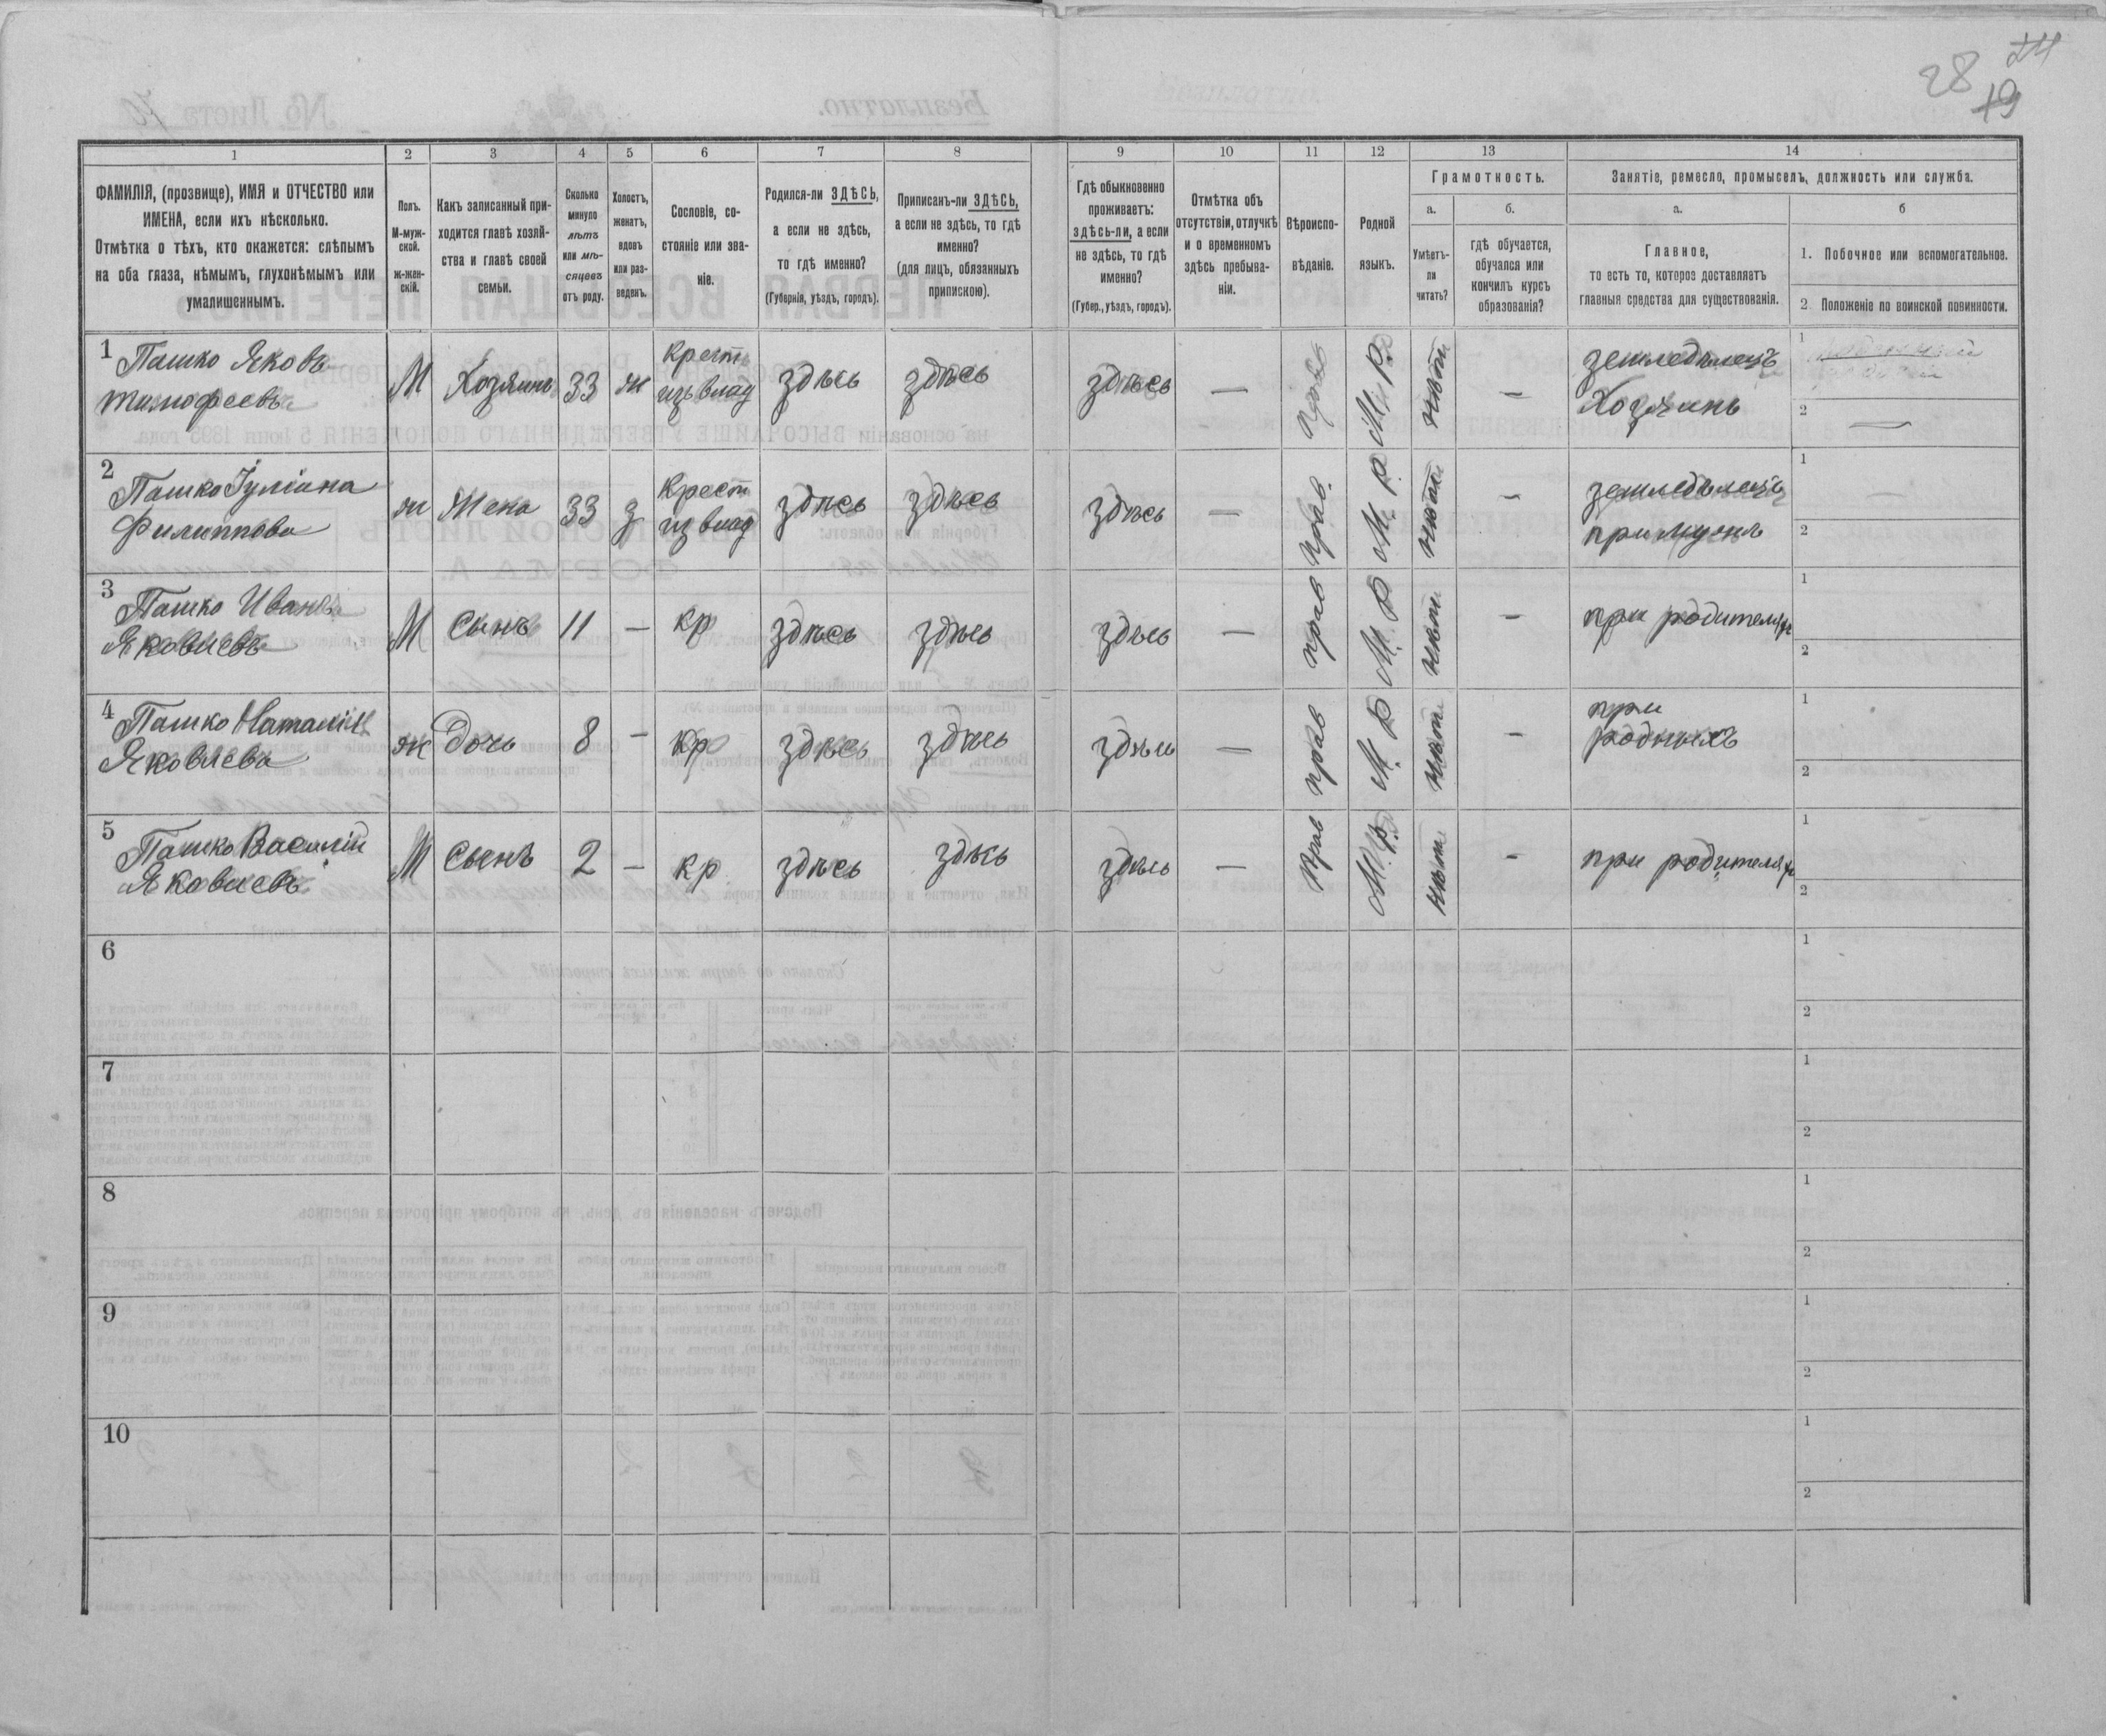 24
28
19
1
2
3
4
5
6
7
8
9
10
11
12
13
14
ФАМИЛІЯ, (прозвище), ИМЯ и ОТЧЕСТВО или
ИМЕНА, если ихъ нѣсколько.
Отмѣтка о тѣхъ, кто окажется: слѣпымъ
на оба глаза, нѣмымъ, глухонѣмымъ или
умалишеннымъ.
Полъ.
М-муж-
ской.
ж-жен-
скій.
Какъ записанный при-
ходится главѣ хозяй-
ства и главѣ своей
семьи.
Сколько
минуло
лѣтъ
или мѣ-
сяцевъ
отъ роду.
Холостъ,
женатъ,
вдовъ
или раз-
веденъ.
Сословіе, со-
стояніе или зва-
ніе.
Родился-ли ЗДѢСЬ,
а если не здѣсь,
то гдѣ именно?
(Губернія, уѣздъ, городъ).
Приписанъ-ли ЗДѢСЬ,
а если не здѣсь, то гдѣ
именно?
(для лицъ, обязанныхъ
припискою).
Гдѣ обыкновенно
проживаетъ:
здѣсь-ли, а если
не здѣсь, то гдѣ
именно?
(Губер., уѣздъ, городъ).
Отмѣтка объ
отсутствіи, отлучкѣ
и о временномъ
здѣсь пребыва-
ніи.
Вѣроиспо-
вѣданіе.
Родной
языкъ.
Грамотность.
а.
Умѣетъ-
ли
читать?
б.
гдѣ обучается,
обучался или
кончилъ курсъ
образованія?
Занятіе, ремесло, промыселъ, должность или служба.
а.
Главное,
то есть то, которое доставляетъ
главныя средства для существованія.
б
1. Побочное или вспомогательное.
2 Положеніе по воинской повинности.
1
Пашко Яковъ
Тимофеевъ
М
Хозяинъ
33
ж
Крестъ
изъ влад
здѣсь
здѣсь
здѣсь
—
прав
М. Р.
нѣтъ
—
земледѣлецъ
Хозяинъ
1
2
—
2
Пашко Іуліана
Филиппова
ж
Жена
33
з
Крест
из влад
здѣсь
здѣсь
здѣсь
—
прав.
М. Р.
нѣтъ
—
земледѣлецъ
при мужѣ
1
2
3
Пашко Иванъ
Яковлевъ
М
Сынъ
11
—
кр
здѣсь
здѣсь
здѣсь
—
прав
М. Р
нѣтъ
—
при родителяхъ
1
2
4
Пашко Наталія
Яковлева
ж
Дочь
8
—
кр
здѣсь
здѣсь
здѣсь
—
прав
М. Р
нѣтъ
—
при
родныхъ
1
2
5
Пашко Василій
Яковлевъ
М
Сынъ
2
—
кр.
здѣсь
здѣсь
здѣсь
—
прав
М. Р.
нѣтъ
—
при родителяхъ
1
2
6
1
2
7
1
2
8
1
2
9
1
2
10
1
2